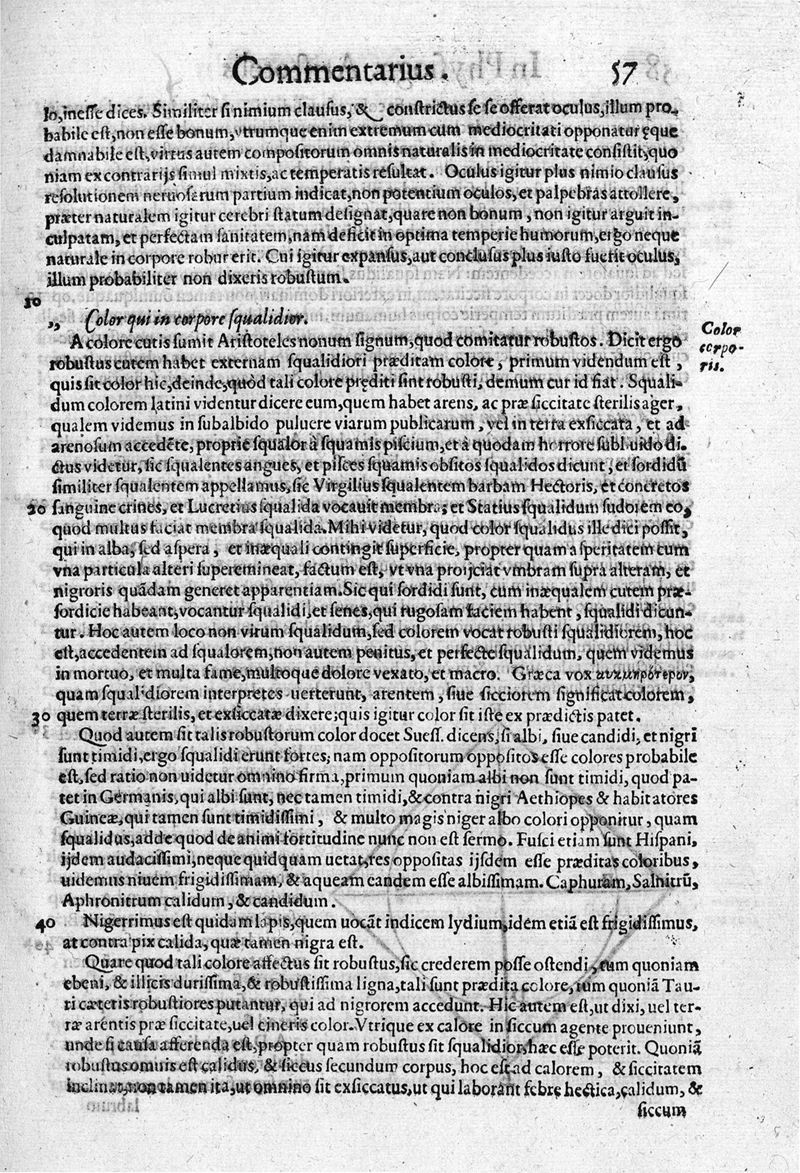 Commentarius. 57
lo, inesse dices. Similiter si nimium clausus, & constrictus se se offerat oculus, illum pro-
babile est, non esse bonum, vtrumque enim extremum cum mediocritati opponatur ęque
damnabile est, virtus autem compositorum omnis naturalis in mediocritate consistit, quo
niam ex contrarijs simul mixtis, ac temperatis resultat. Oculus igitur plus nimio clausus
resolutionem neruosarum partium indicat, non potentium oculos, et palpebras attollere,
præter naturalem igitur cerebri statum designat, quare non bonum, non igitur arguit in-
culpatam, et perfectam sanitatem, nam deficit in optima temperie humorum, ergo neque
naturale in corpore robur erit. Cui igitur expansus, aut conclusus plus iusto fuerit oculus,
illum probabiliter non dixeris robustum.
10
„ Color qui in corpore squalidior.
A colore cutis sumit Aristoteles nonum signum, quod comitatur robustos. Dicit ergo
Color
corpo-
ris.
robustus cutem habet externam squalidiori præditam colore, primum videndum est,
quis sit color hic, deinde, quód tali colore prediti sint robusti, demum cur id fiat. Squali-
dum colorem latini videntur dicere eum, quem habet arens, ac præ siccitate sterilis ager,
qualem videmus in subalbido puluere viarum publicarum, vel in terra exsiccata, et ad
arenosum accedēte, proprie squalor à squamis piscium, et à quodam horrore subliuido di-
ctus videtur, sic squalentes angues, et pisces squamis obsitos squalidos dicunt, et sordidū
similiter squalentem appellamus, sic Virgilius squalentem barbam Hectoris, et concretos
20 sanguine crines, et Lucretius squalida vocauit membra; et Statius squalidum sudorem eo,
quod multus faciat membra squalida. Mihi videtur, quod color squalidus ille dici possit,
qui in alba, sed aspera, et inæquali contingit superficie, propter quam asperitatem cum
vna particula alteri superemineat, factum est, vt vna proijciat vmbram supra alteram, et
nigroris quādam generet apparentiam. Sic qui sordidi sunt, cum inæqualem cutem præ-
sordicie habeant, vocantur squalidi, et senes, qui rugosam faciem habent, squalidi dicun-
tur. Hoc autem loco non virum squalidum, sed colorem vocat robusti squalidiorem, hoc
est, accedentem ad squalorem, non autem penitus, et perfecte squalidum, quem videmus
in mortuo, et multa fame, multoque dolore vexato, et macro. Græca vox
quam squalidiorem interpretes uerterunt, arentem, siue sicciorem significat colorem,
30 quem terræ sterilis, et exsiccatæ dixere; quis igitur color sit iste ex prædictis patet.
Quod autem sit talis robustorum color docet Suess. dicens, si albi, siue candidi, et nigri
sunt timidi, ergo squalidi erunt fortes; nam oppositorum oppositos esse colores probabile
est, sed ratio non uidetur omnino firma, primum quoniam albi non sunt timidi, quod pa-
tet in Germanis, qui albi sunt, nec tamen timidi, & contra nigri Aethiopes & habitatores
Guineæ, qui tamen sunt timidissimi, & multo magis niger albo colori opponitur, quam
squalidus, adde quod de animi fortitudine nunc non est sermo. Fusci etiam sunt Hispani,
ijdem audacissimi, neque quidquam uetat, res oppositas ijsdem esse præditas coloribus,
uidemus niuem frigidissimam, & aqueam eandem esse albissimam. Caphuram, Salnitrū,
Aphronitrum calidum, & candidum.
40 Nigerrimus est quidam lapis, quem uocāt indicem lydium, idem etiā est frigidissimus,
at contra pix calida, quæ tamen nigra est.
Quare quod tali colore affectus sit robustus, sic crederem posse ostendi, tum quoniam
ebeni, & illicis durissima, & robustissima ligna, tali sunt prædita colore, tum quoniā Tau-
ri cæteris robustiores putantur, qui ad nigrorem accedunt. Hic autem est, ut dixi, uel ter-
ræ aréntis præ siccitate, uel cineris color. Vtrique ex calore in siccum agente proueniunt,
unde si causa afferenda est, propter quam robustus sit squalidior, hæc esse poterit. Quoniā
robustus omnis est calidus, & siccus secundum corpus, hoc est ad calorem, & siccitatem
inclinat, non tamen ita, ut omnino sit exsiccatus, ut qui laborant febre hectica, calidum, &
siccum